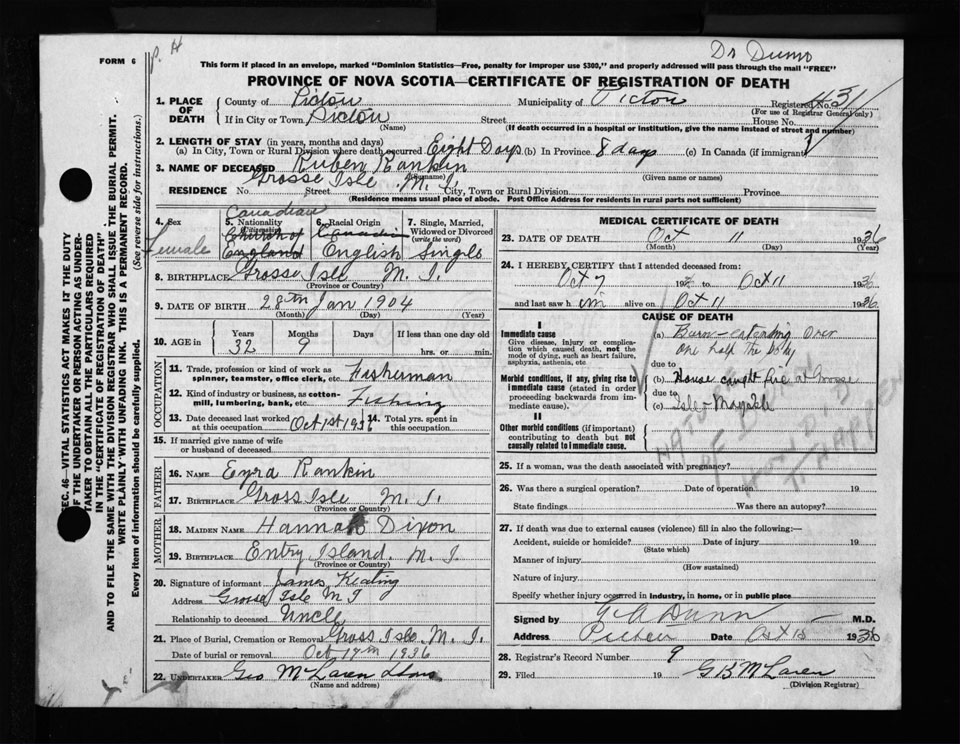 P. H
Dr Dunn
FORM 6
This form if placed in an envelope, marked "Dominion Statistics—Free, penalty for improper use $300," and properly addressed will pass through the mail "FREE"
PROVINCE OF NOVA SCOTIA—CERTIFICATE OF REGISTRATION OF DEATH
1. PLACE OF DEATH
County of Pictou Municipality of Pictou Registered No. 431
(For use of Registrar General only)
If in City or Town Pictou Street House No.
(Name) (If death occurred in a hospital or institution, give the name instead of street and number)
2. LENGTH OF STAY (in years, months and days)
(a) In City, Town or Rural Division where death occurred Eight Days (b) In Province 8 days (c) In Canada (if immigrant)
3. NAME OF DECEASED Ruben Rankin
(Surname) (Given name or names)
Grosse Isle M. I.
RESIDENCE No. Street City, Town or Rural Division Province
(Residence means usual place of abode. Post Office Address for residents in rural parts not sufficient)
4. Sex
Female
5. Nationality
(Citizenship)
Canadian
Church of
England
6. Racial Origin
Canadian
English
7. Single, Married, Widowed or Divorced
(write the word)
Single
8. BIRTHPLACE Grosse Isle M. I.
(Province or Country)
9. DATE OF BIRTH 28th Jan 1904
(Month) (Day) (Year)
10. AGE in Years Months Days If less than one day old
32 9 hrs. or min.
OCCUPATION
11. Trade, profession or kind of work as spinner, teamster, office clerk, etc. Fisherman
12. Kind of industry or business, as cotton-mill, lumbering, bank, etc. Fishing
13. Date deceased last worked at this occupation Oct 1st 1936
14. Total yrs. spent in this occupation
15. If married give name of wife or husband of deceased
FATHER
16. NAME Ezra Rankin
17. BIRTHPLACE Gross Isle M. I.
(Province or Country)
MOTHER
18. MAIDEN NAME Hannah Dixon
19. BIRTHPLACE Entry Island. M. I.
(Province or Country)
20. Signature of informant James Keating
Address Grosse Isle M I
Relationship to deceased Uncle
21. Place of Burial, Cremation or Removal Gross Isle. M. I.
Date of burial or removal Oct 17th 1936
22. UNDERTAKER Geo McLaren &Sons
(Name and address)
MEDICAL CERTIFICATE OF DEATH
23. DATE OF DEATH Oct 11 1936
(Month) (Day) (Year)
24. I HEREBY CERTIFY that I attended deceased from:
Oct 7 193 to Oct 11 1936
and last saw him alive on Oct 11 1936
CAUSE OF DEATH
I
Immediate cause
Give disease, injury or complication which caused death, not the mode of dying, such as heart failure, asphyxia, asthenia, etc.
(a) Burn—extending over
one half the body
due to
Morbid conditions, if any, giving rise to immediate cause (stated in order proceeding backwards from immediate cause).
(b) House caught fire at Grosse
due to
(c) Isle—
II
Other morbid conditions (if important) contributing to death but not causally related to immediate cause.
25. If a woman, was the death associated with pregnancy?
26. Was there a surgical operation? Date of operation 19
State findings Was there an autopsy?
27. If death was due to external causes (violence) fill in also the following:—
Accident, suicide or homicide? Date of injury 19
(State which)
Manner of injury
(How sustained)
Nature of injury
Specify whether injury occurred in industry, in home, or in public place
Signed by G A Dunn M.D.
Address Pictou Date Oct 12 1936
28. Registrar's Record Number 9
29. Filed 19 G B McLaren
(Division Registrar)
SEC. 46—VITAL STATISTICS ACT MAKES IT THE DUTY
OF THE UNDERTAKER OR PERSON ACTING AS UNDERTAKER
TO OBTAIN ALL THE PARTICULARS REQUIRED
IN THE "CERTIFICATE OF REGISTRATION OF DEATH".
AND TO FILE THE SAME WITH THE DIVISION REGISTRAR WHO SHALL ISSUE THE BURIAL PERMIT.
WRITE PLAINLY WITH UNFADING INK. THIS IS A PERMANENT RECORD.
Every item of information should be carefully supplied. (See reverse side for instructions.)